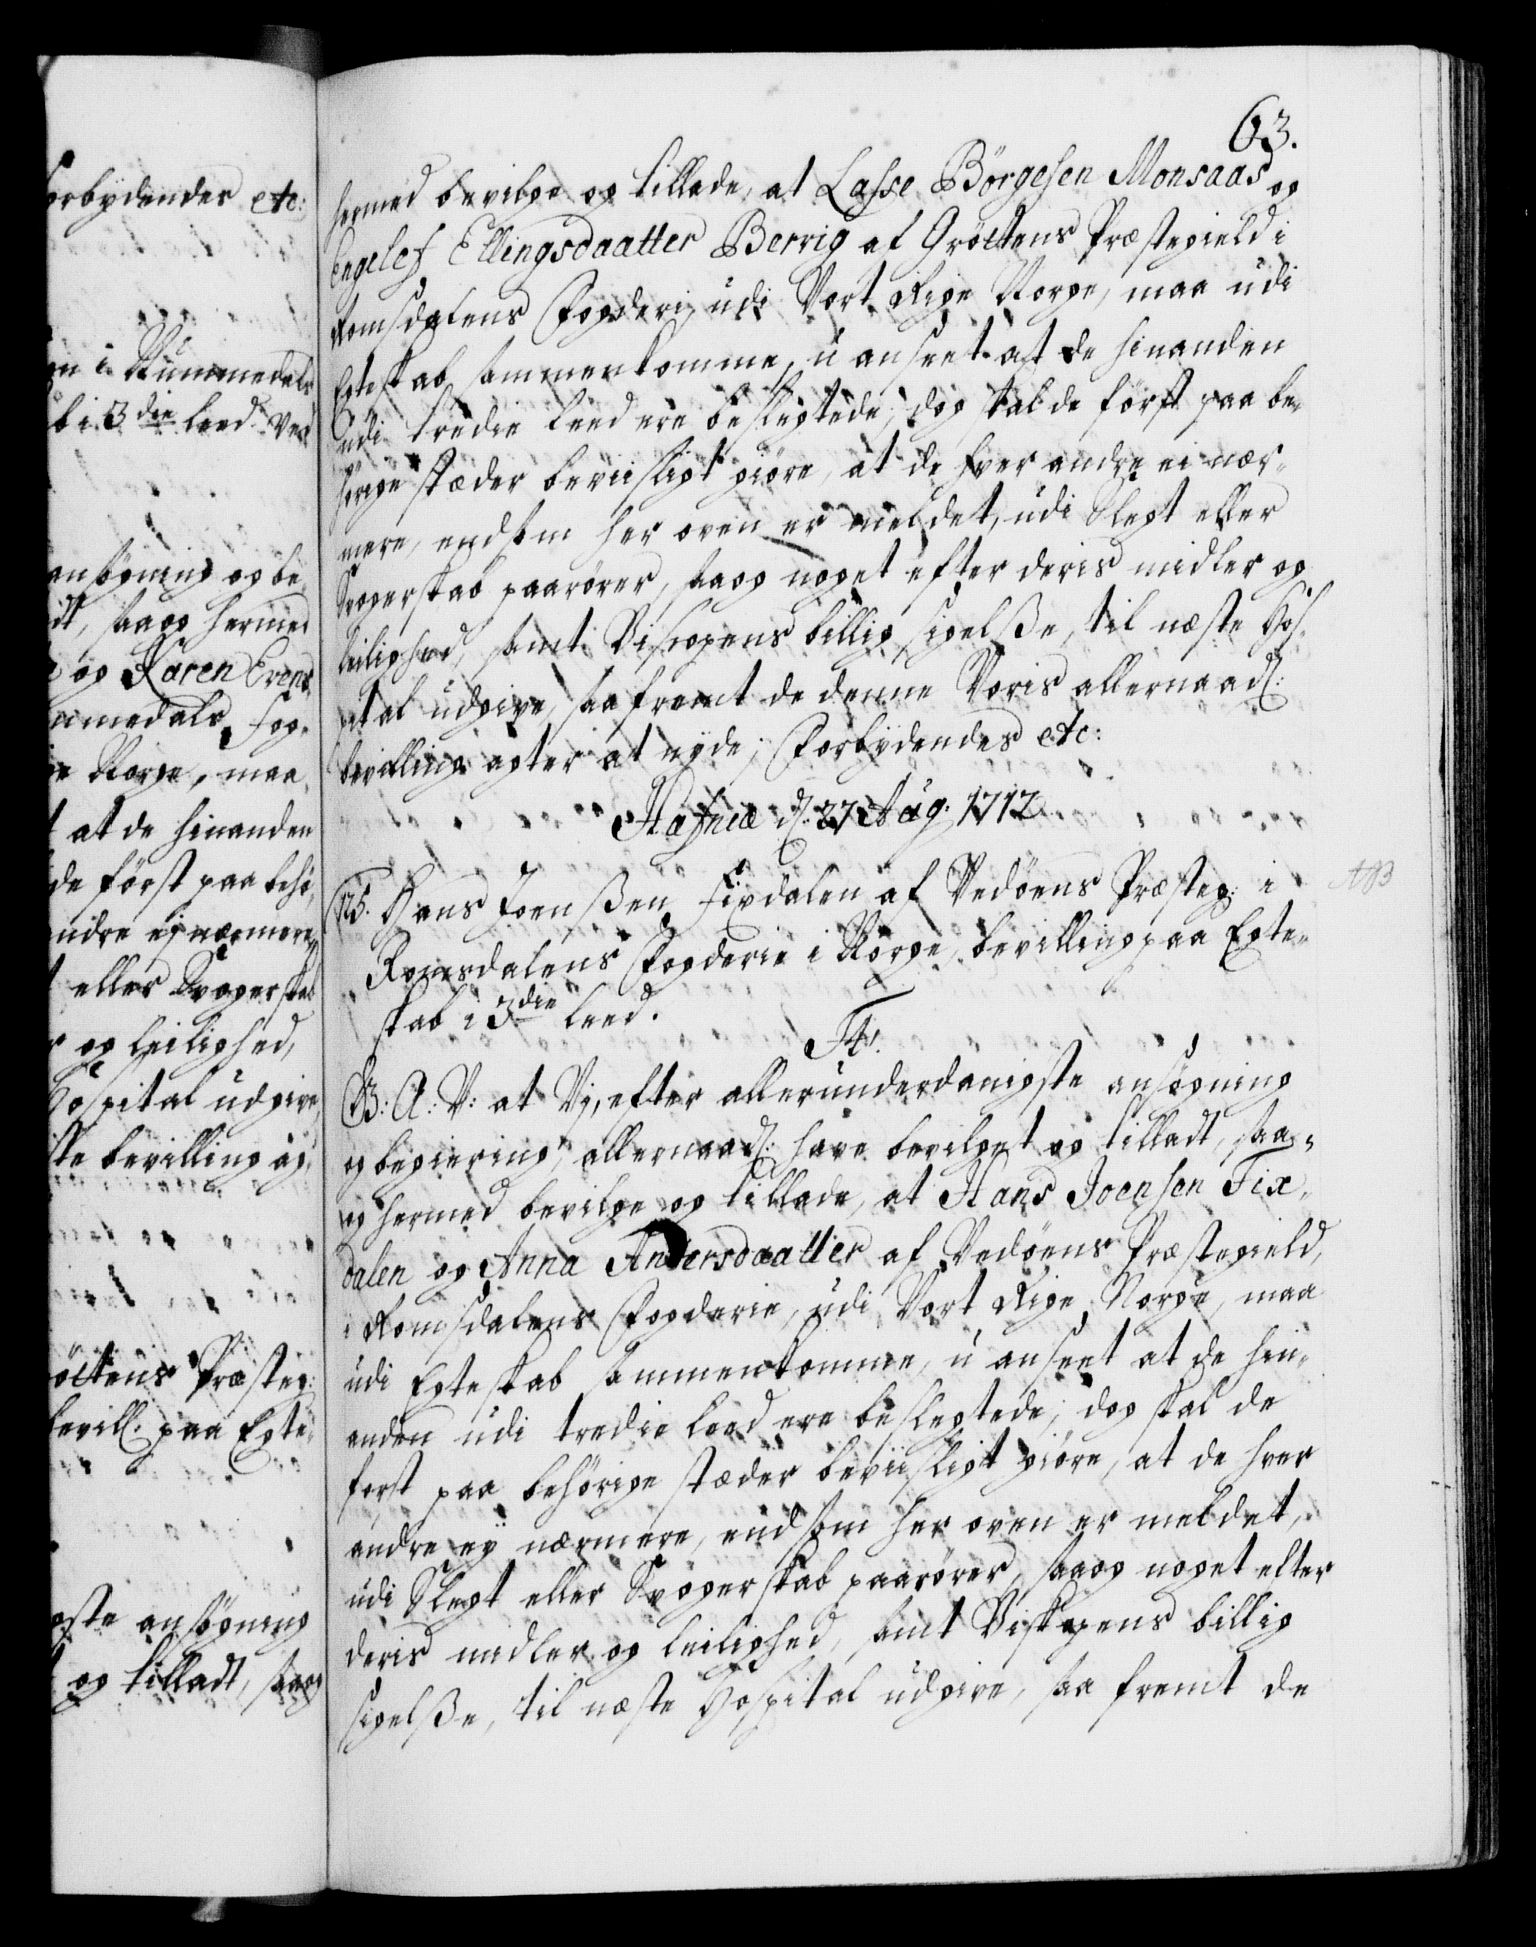 orbydendes etc:
en i Nummedals
b i 3die Leed. Ved
ansøgning og be
dt, saa og hermed
e og Karen Evens
ummedals Fog-
ge Norge, maa
t at de hinanden
de först paa behö-
andre ej nærmere
t eller Svogerskab
r og leilighed,
Hospital udgive
ste bevilling ag-
öttens Præsteg:
bevill: paa Egte-
gste ansøgning
t og tilladt, saa og
63.
hermed bevilge og tillade, at Lasse Börgesen Monsaas og
Engelef Ellingsdaatter Berrig af Gröttens Præstegield i
Romsdalens Fogderi, udi Vort Rige Norge, maa udi
Egteskab sammenkomme, u anseet at de hinanden
udi tredie Leed ere beslegtede; dog skal de först paa be-
hörige stæder beviisligt giøre, at de hver andre ei nær-
mere, end som her oven er meldet, udi Slegt eller
Svogerskab paarører, saa og noget efter deris midler og
leilighed, samt Biscopens billig sigelße, til næste Hos-
pital udgive, saa fremt de denne Voris allernaad:
bevilling agter at nyde; Forbydendes etc:
Hafniæ d: 27 Aug: 1712
125. Hans Joenßen Fixdalen af Vedöens Præsteg: i
Romsdalens Fogderie i Norge, bevilling paa Egte-
skab i 3die Leed.
F4t.
G: A: V: at Vj, efter allerunderdanigste ansøgning
og begiering, allernaad: have bevilget og tilladt, saa-
og hermed bevilge og tillade, at Hans Joensen Fix-
dalen og Anna Andersdaatter af Vedöens Præstegield,
i Romsdalens Fogderie, udi Vort Rige Norge, maa
udi Egteskab sammenkomme, u anseet at de hin-
anden udi tredie Leed ere beslegtede; dog skal de
først paa behörige stæder beviisligt giøre, at de hver
andre ey nærmere, end som her oven er meldet,
udi Slegt eller Svogerskab paarører, saa og noget efter
deris midler og leilighed, samt Biskopens billig
sigelße, til næste Hospital udgive, saa fremt de